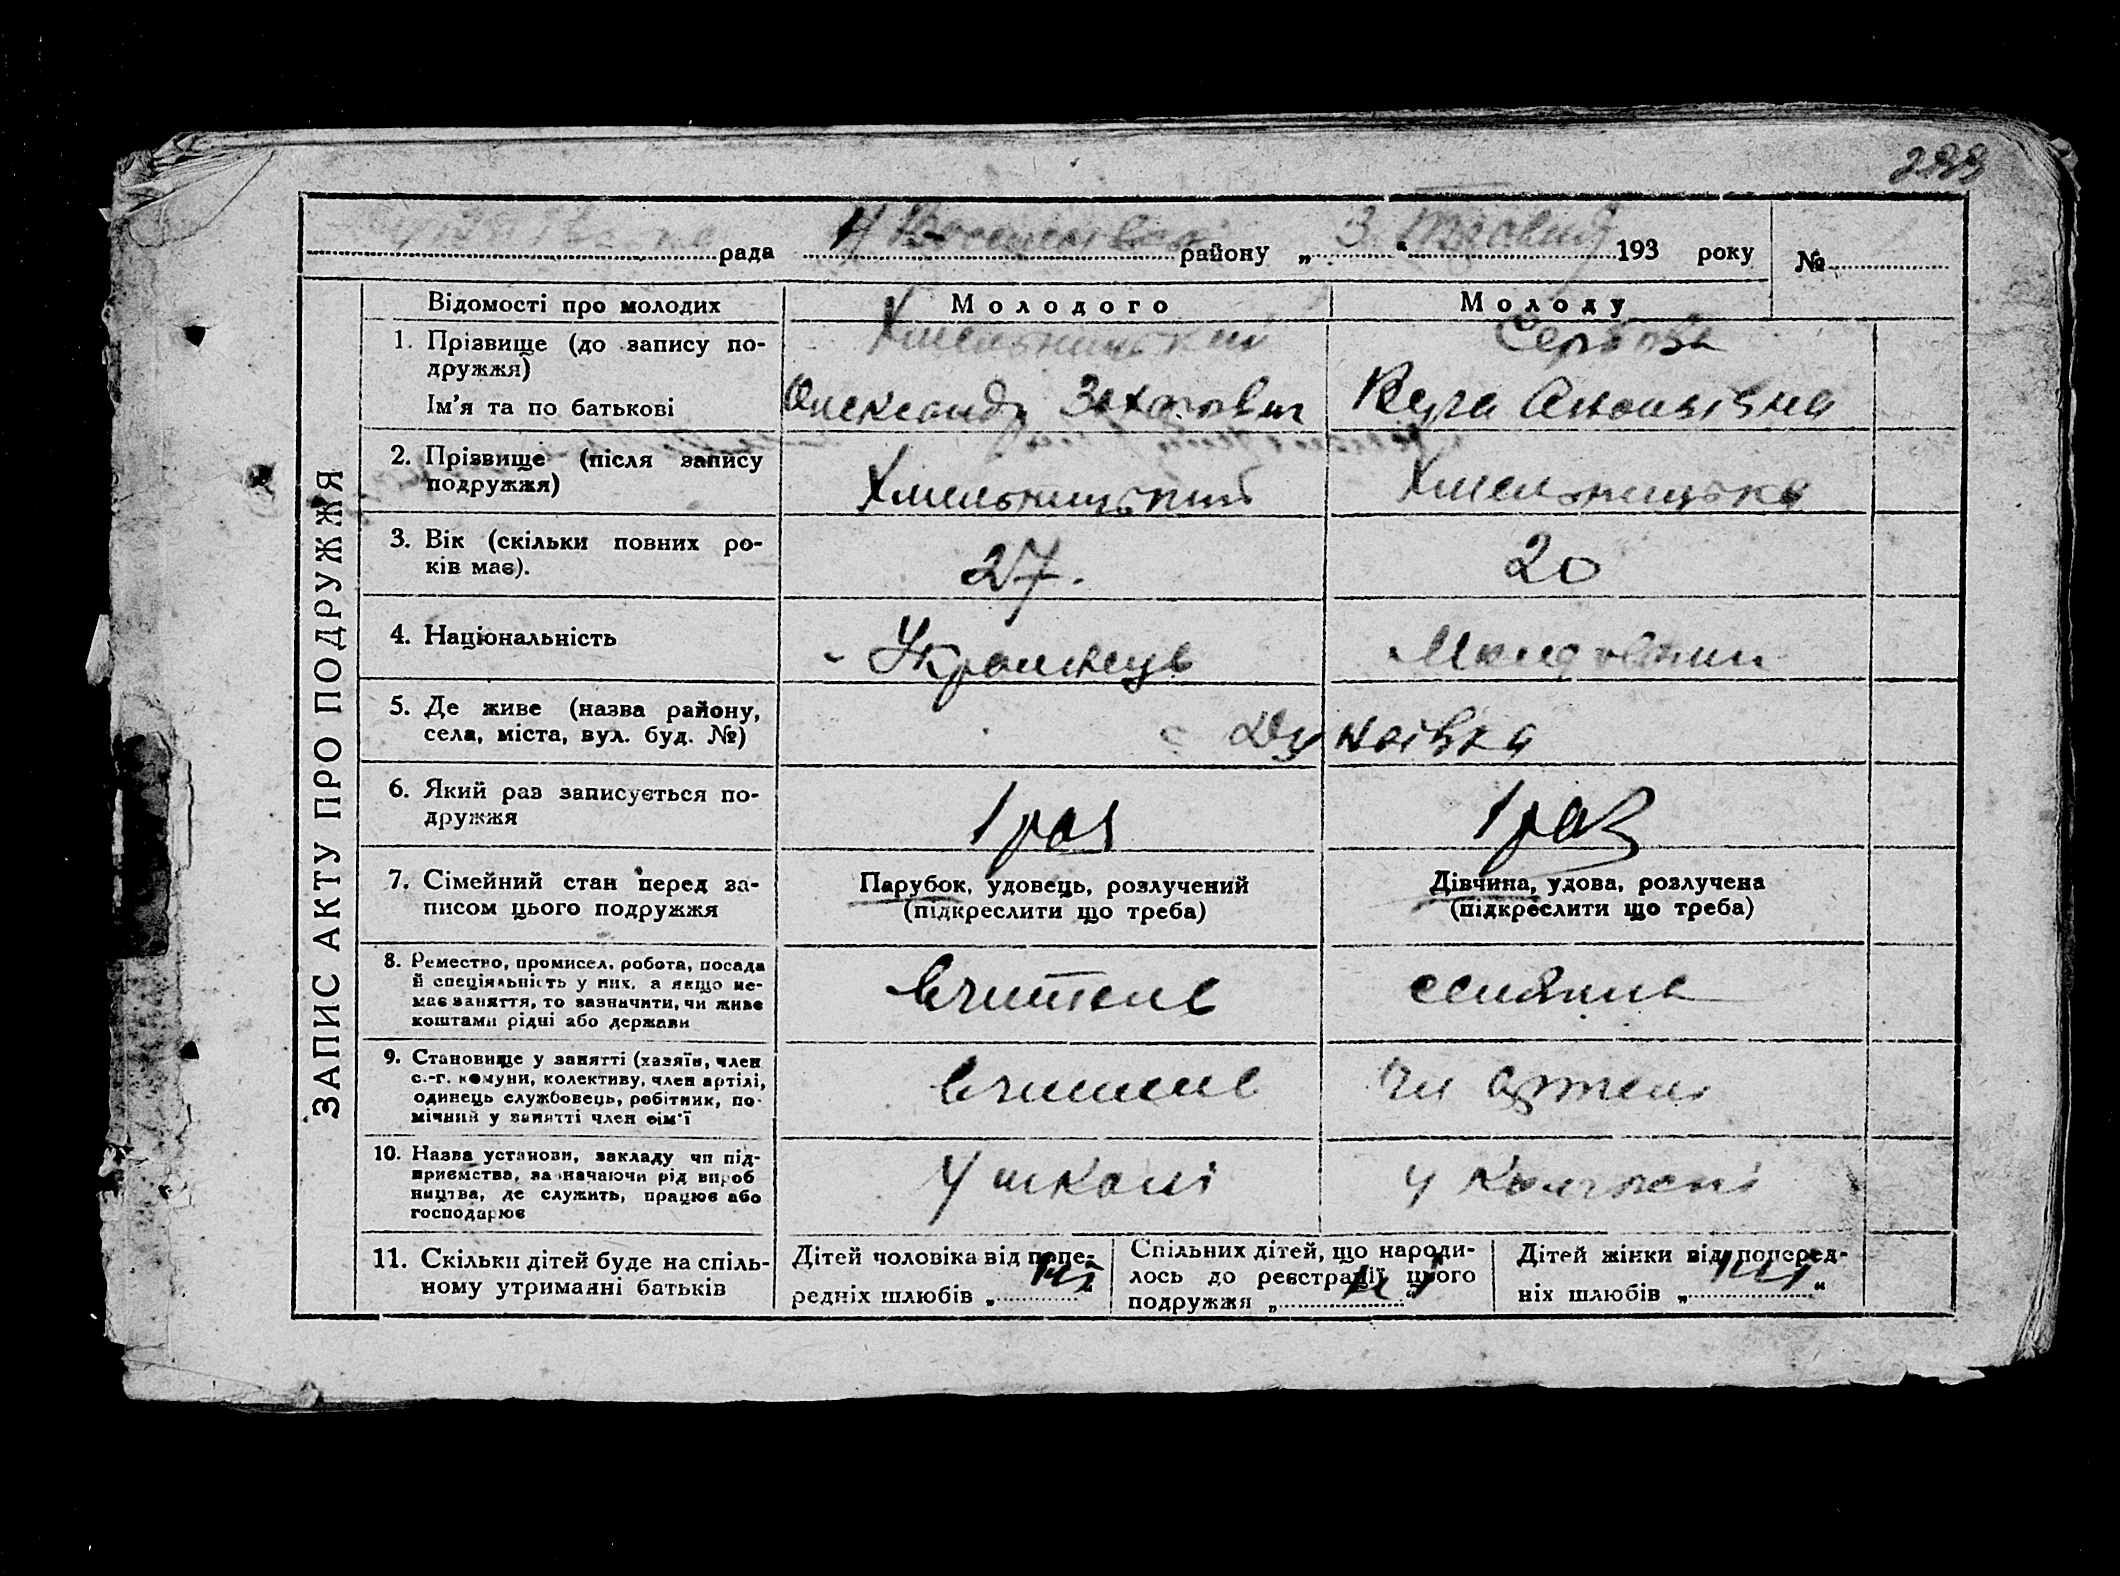 299
рада Н Воскисівськ району „ 3 " Травня 193 року №
Відомості про молодих Молодого Молоду
1. Прізвище (до запису по-
дружжя)
Хмельницький
Ім'я та по батькові Олександр Захарович Вера
2. Прізвище (після запису
подружжя)
Хмельницький Хмельницька
3. Вік (скільки повних ро-
ків має).
27. 20
4. Національність Українець
5. Де живе (назва району,
села, міста, вул. буд. №)
6. Який раз записується по-
дружжя
1 раз 1 раз
7. Сімейний стан перед за-
писом цього подружжя
Парубок, удовець, розлучений
(підкреслити що треба)
Дівчина, удова, розлучена
(підкреслити що треба)
8. Ремество, промисел, робота, посада
й спеціяльність у них, а якщо не-
має заняття, то зазначити, чи живе
коштами рідні або держави
Вчитель
9. Становище у занятті (хазяїн, член
с.-г. комуни, колективу, член артілі,
одинець службовець, робітник, по-
мічний у занятті член сім'ї
вчитель чл артелі
10. Назва установи, закладу чи під-
приємства, зазначаючи рід вироб
ництва, де служить, працює або
господарює
У школі у Колгоспі
11. Скільки дітей буде на спіль-
ному утриманні батьків
Дітей чоловіка від попе-
редніх шлюбів „ "
Спільних дітей, що народи-
лось до реєстрації цього
подружжя „ "
Дітей жінки від поперед-
ніх шлюбів „ "
ЗАПИС АКТУ ПРО ПОДРУЖЖЯ